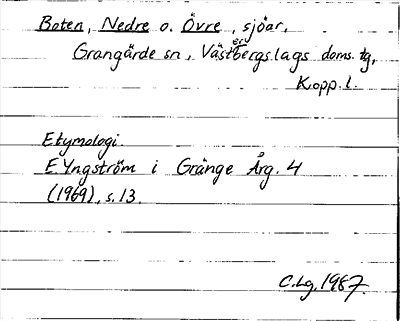 Boten, Nedre o. Övre, sjöar,
Grangärde sn, Västerbergslags doms. tg,
Kopp. l.
Etymologi.
E Yngström i Gränge Årg. 4
(1969), s. 13.
C. Lg. 1987.